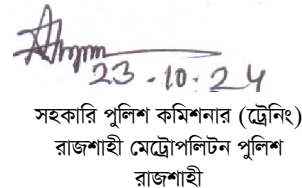 23.10.24
সহকারি পুলিশ কমিশনার (ট্রেনিং)
রাজশাহী মেট্রোপলিটন পুলিশ
রাজশাহী